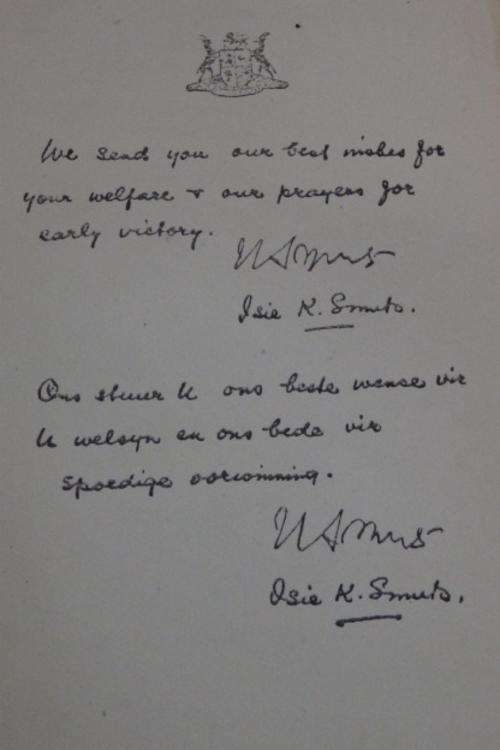 We send you our best wishes for
your welfare & our prayers for
early victory.
Isie K. Smuts.
Ons stuur U ons beste wense vir
U welsyn en ons bede vir
spoedige oorwinning.
Isie K. Smuts.